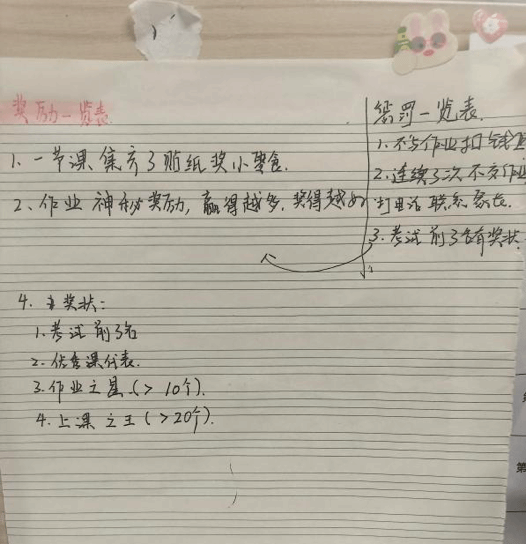 奖励一览表
1. 一节课集齐3贴纸奖小零食.
2、作业神秘奖励, 赢得越多, 奖得越好
惩罚一览表
1. 不写作业扣钱
2. 连续3次不交作业
打电话联系家长.
3. 考试前3名有奖状
4. 奖状:
1. 考试前3名
2. 优秀课代表.
3. 作业之星 (>10个).
4. 上课之王 (>20个).
第